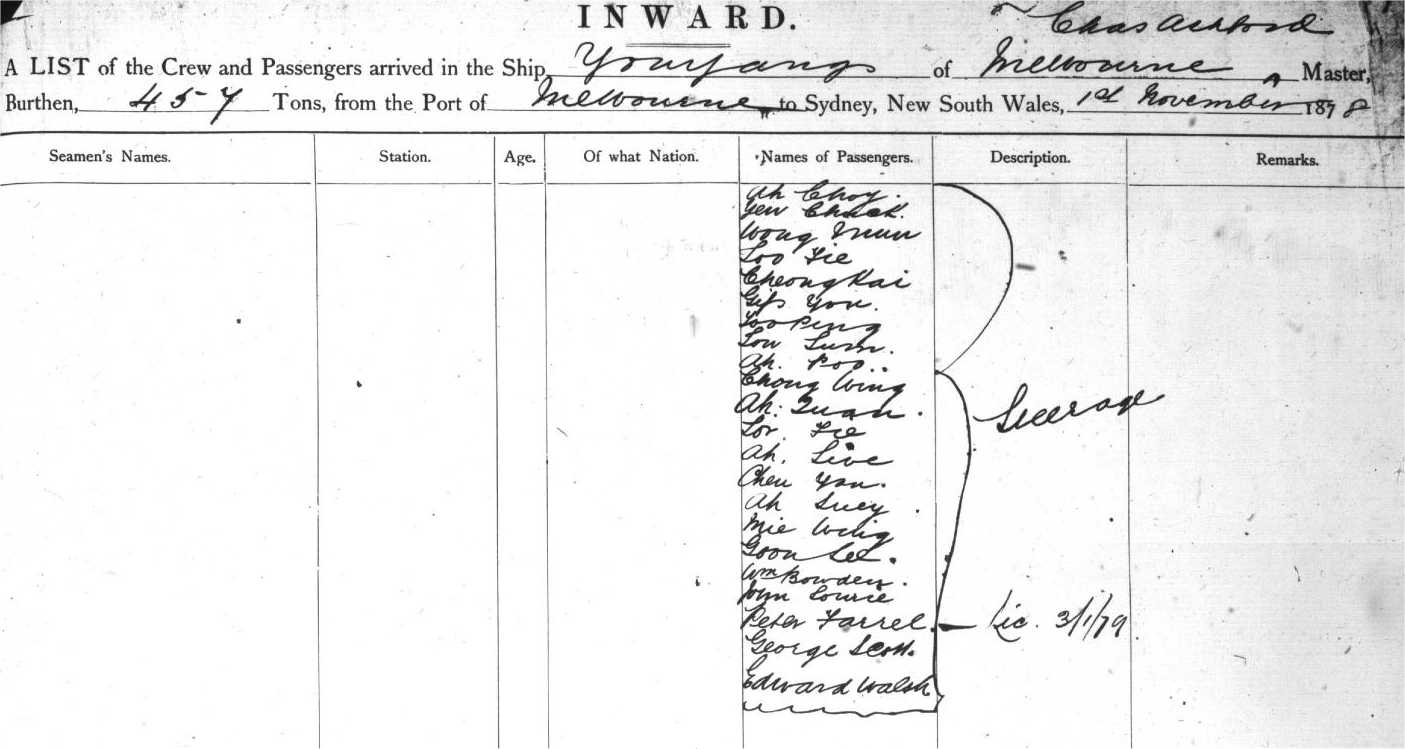 INWARD.
Chas Ashford
A LIST of the Crew and Passengers arrived in the Ship Youyangs of Melbourne Master,
Burthen, 457 Tons, from the Port of Melbourne to Sydney, New South Wales, 1st November 1878
Seamen's Names. Station. Age. Of what Nation. Names of Passengers. Description. Remarks.
Ah Choy.
Yew Chuck.
Wong Mun
Loo Fie
Cheong Kai
You.
Loo Ping
Low Sum.
Ah. Poo..
Chong Wing
Ah. Quan.
Steerage
Lor. Fie
Ah. Live
Chen Yan.
Ah Suey.
Mie Wing
Goon Lee.
Wm Bowden.
John Lourie
Peter Farrel. Lic. 3/1/79
George Scott.
Edward Walsh